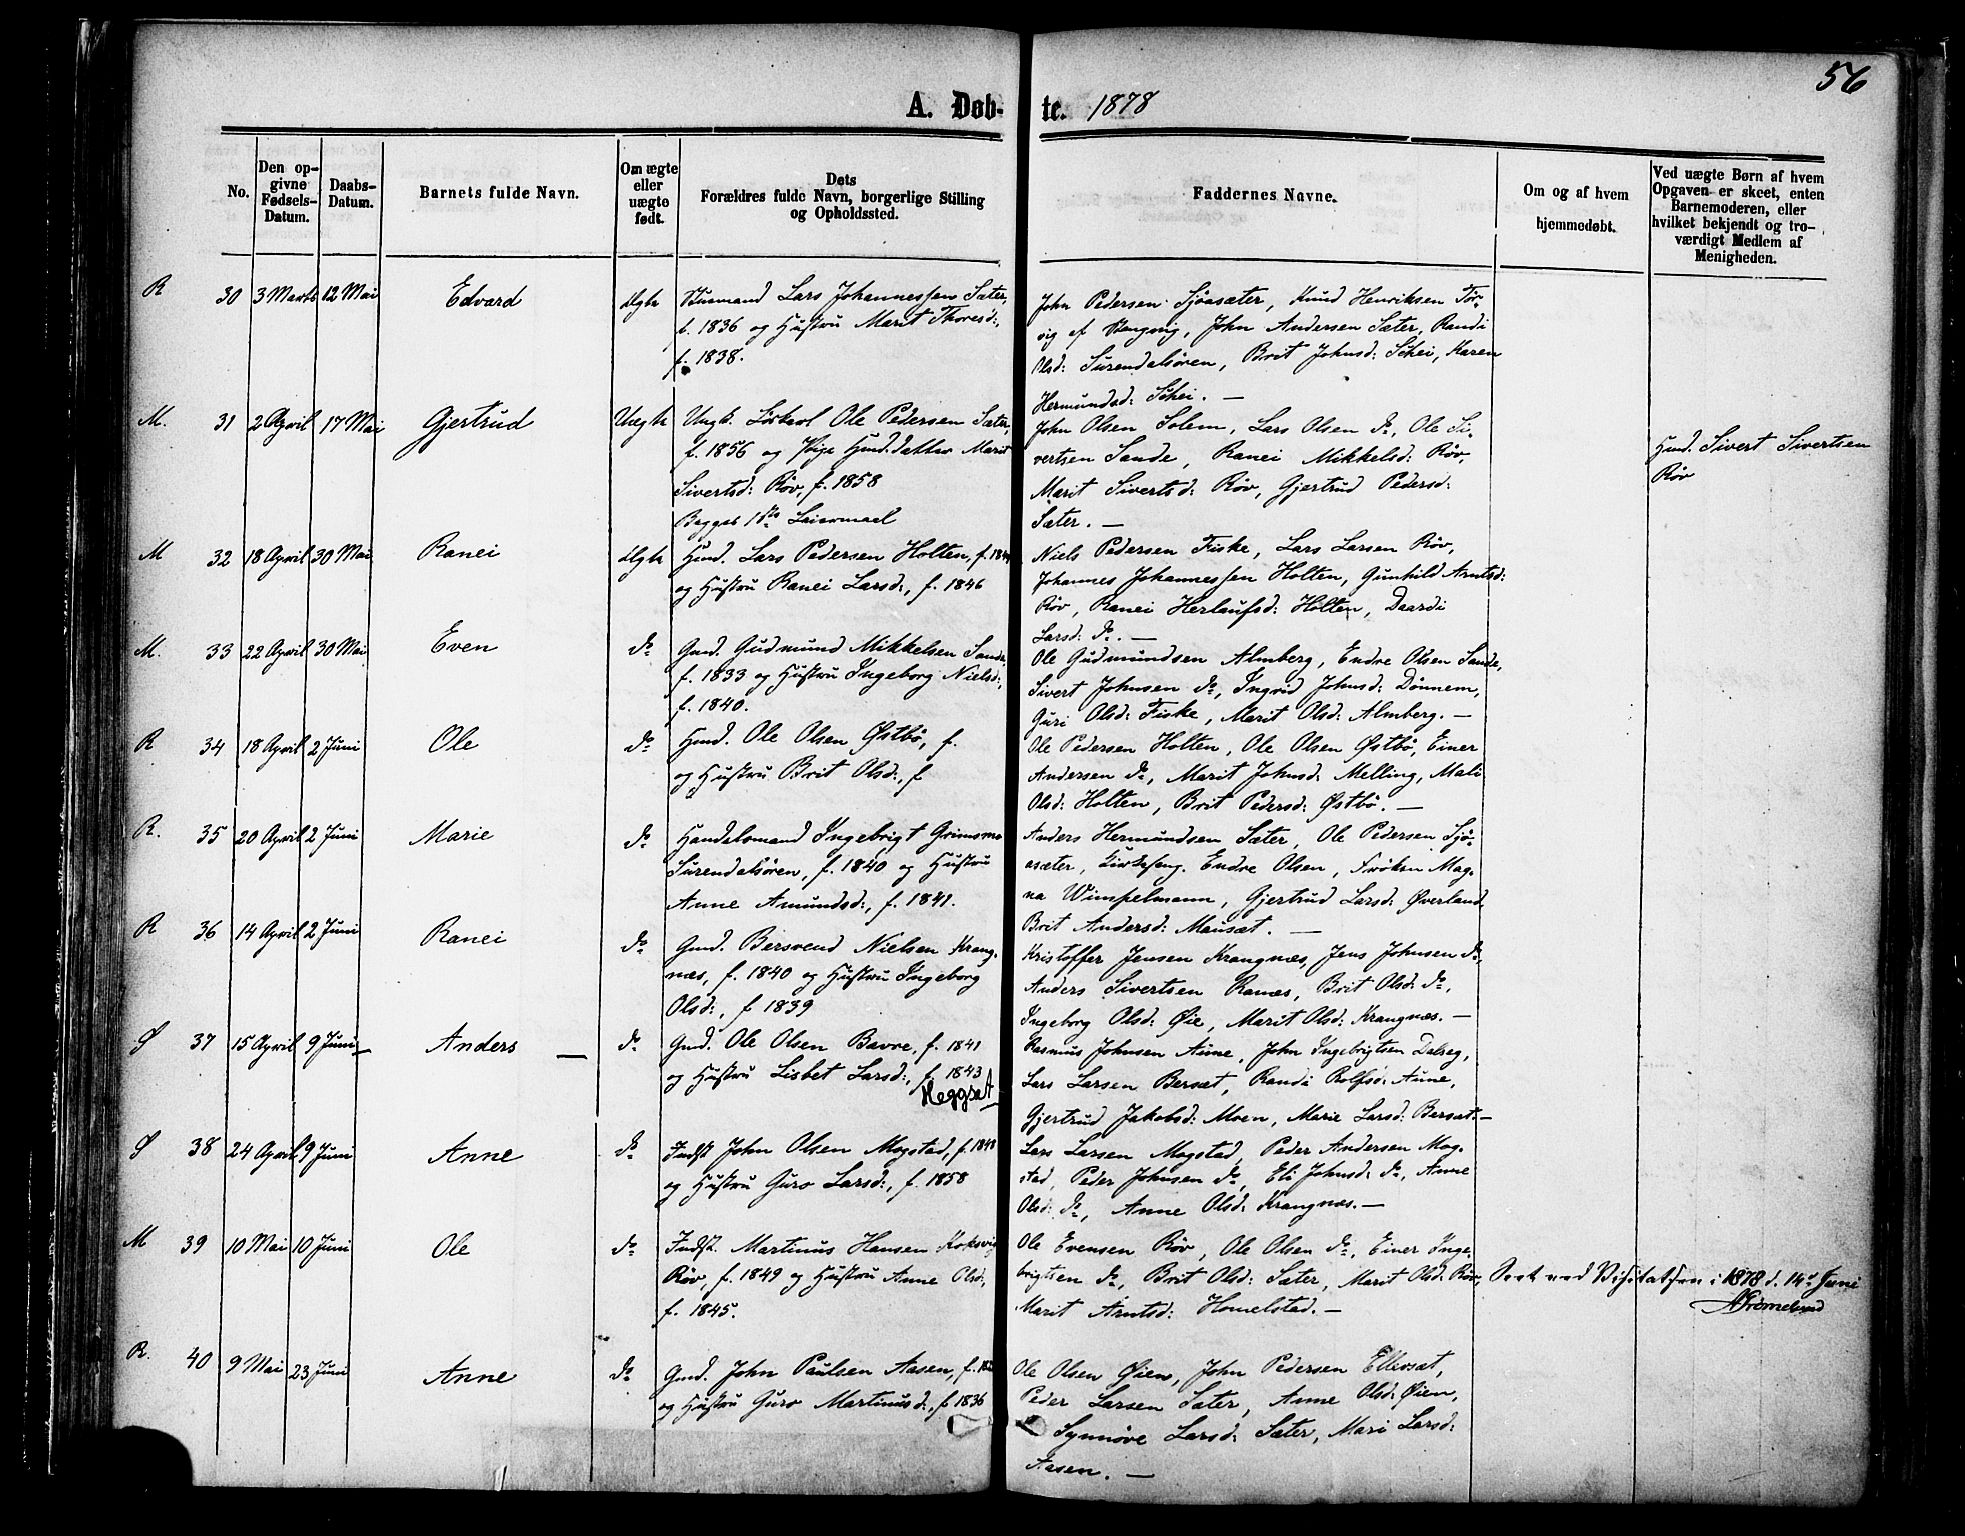 56
A. Døb-
te. 1878
No.
Den op-
givne
Fødsels-
Datum.
Daabs-
Datum.
Barnets fulde Navn.
Om ægte
eller
uægte
født.
Dets
Forældres fulde Navn, borgerlige Stilling
og Opholdssted.
Faddernes Navne.
Om og af hvem
hjemmedøbt.
Ved uægte Børn af hvem
Opgaven er skeet, enten
Barnemoderen, eller
hvilket bekjendt og tro-
værdigt Medlem af
Menigheden.
R 30 3 Marts 12 Mai Edvard Ægte
Husmand Lars Johannessen Sæter,
f. 1836 og Hustru Marit Thoresd:,
f. 1838.
John Pedersen Sjøasæter, Knud Henriksen Tør-
vig af Stangvig, John Andersen Sæter, Randi
Olsd: Surendalsøren, Brit Johnsd: Schei, Karen
Hermundsd: Schei. —
M. 31 2 April 17 Mai Gjertrud Uægte
Ungk. Ole Pedersen Sæter,
f. 1856 og Pige Gmd. datter Marit
Sivertsd: Røv, f. 1858
Begges 1ste Leiermaal
John Olsen Solem, Lars Olsen do, Ole Si-
vertsen Sande, Ranei Mikkelsd: Røv,
Marit Sivertsd: Røv, Gjertrud Pedersd:
Sæter. —
Gmd. Sivert Sivertsen
Røv
M 32 18 April 30 Mai Ranei Ægte
Hmd. Lars Pedersen Holten,
og Hustru Ranei Larsd:, f. 1846
Niels Pedersen Fiske, Lars Larsen Røv,
Johannes Johannessen Holten, Gunhild Arntsd:
Røv, Ranei Herlaufsd: Holten, Daardi
Larsd: do. —
M. 33 22 April 30 Mai Even do
Gmd. Gudmund Mikkelsen Sande,
f. 1833 og Hustru Ingeborg Nielsd:,
f. 1840.
Ole Gudmundsen Almberg, Endre Olsen Sande,
Sivert Johnsen do, Ingrid Johnsd: Dønnem,
Guri Olsd: Fiske, Marit Olsd: Almberg. —
R 34 18 April 2 Juni Ole do
Hmd. Ole Olsen Østbø, f.
og Hustru Brit Olsd:, f
Ole Pedersen Holten, Ole Olsen Østbø, Einer
Andersen do, Marit Johnsd: Melling, Mali
Olsd: Holten, Brit Pedersd: Østbø. —
R. 35 20 April 2 Juni Marie do
Handelsmand Ingebrigt Grimsmo
Surendalsøren, f. 1840 og Hustru
Anne Amundsd:, f. 1841.
Anders Hermundsen Sæter, Ole Pedersen Sjø-
asæter, Kirkesang. Endre Olsen, Frøken Mag-
na Wimpelmann, Gjertrud Larsd: Øverland,
Brit Andersd: Mausæt. —
R 36 14 April 2 Juni Ranei do
Gmd. Bersvend Nielsen Krang-
næs, f. 1840 og Hustru Ingeborg
Olsd:, f 1839
Kristoffer Jensen Krangnæs, Jens Johnsen do,
Anders Sivertsen Ranæs, Brit Olsd: do,
Ingeborg Olsd: Øie, Marit Olsd: Krangnæs. —
Ø 37 15 April 9 Juni — Anders — do
Gmd. Ole Olsen Bavre, f. 1841
og Hustru Lisbet Larsd:, f. 1843
Heggset
Rasmus Johnsen Aune, John Ingebrigtsen Dalseg,
Lars Larsen Bersæt, Randi Rolfsd: Aune,
Gjertrud Jakobsd: Moen, Marie Larsd: Bersæt. —
Ø 38 24 April 9 Juni Anne do
Indst John Olsen Mogstad, f. 1848
og Hustru Guro Larsd:, f. 1858
Lars Larsen Mogstad, Peder Andersen Mog-
stad, Peder Johnsen do, Eli Johnsd: do, Anne
Olsd: do, Anne Olsd: Krangnæs. —
M 39 10 Mai 10 Juni Ole do
Indst. Martinus Hansen Koksvig
Røv, f. 1849 og Hustru Anne Olsd:,
f. 1845.
Ole Evensen Røv, Ole Olsen do, Einer Inge-
brigtsen do, Brit Olsd: Sæter, Marit Olsd: Røv,
Marit Arntsd: Homelstad. —
Seet ved Visitatsen i 1878 d. 14de Juni
R. 40 9 Mai 23 Juni Anne do
Gmd. John Paulsen Aasen,
og Hustru Guro Martinusd:, f. 1836
Ole Olsen Øien, John Pedersen Ellevsæt,
Peder Larsen Sæter, Anne Olsd: Øien,
Synnøve Larsd: Sæter, Mari Larsd:
Aasen. —